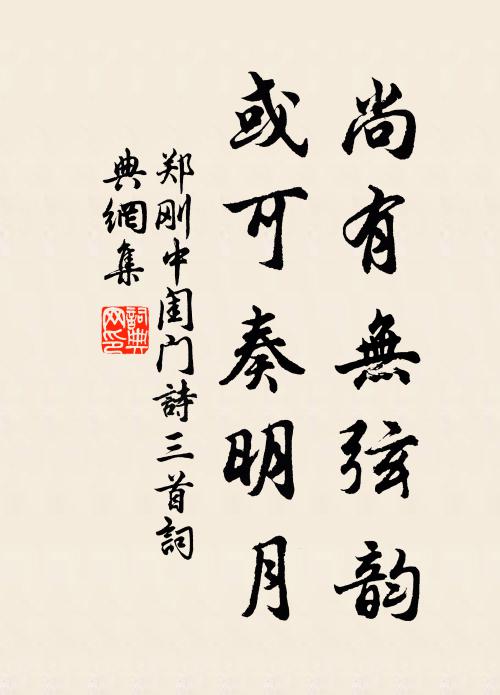 尚有無弦韵
或可奏明月
郑刚中闺门詩三首詞
典網集
詞典网印